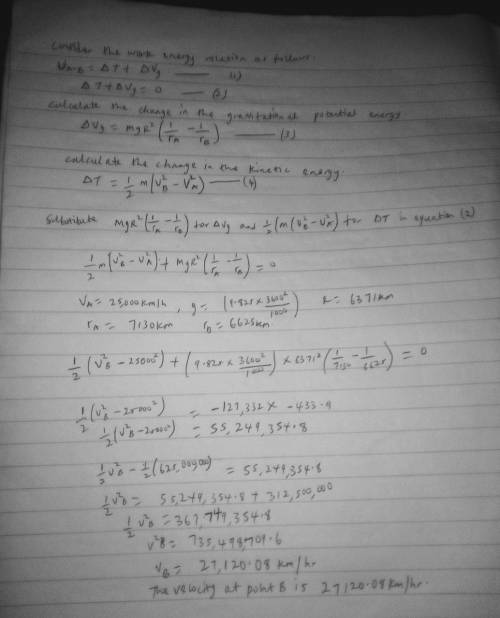 Consider the work energy relation as follows.
U_A-B = ΔT + ΔVg —— (1)
ΔT + ΔVg = 0 —— (2)
Calculate the change in the gravitational potential energy
ΔVg = mgR² (1/rA - 1/rB) —— (3)
calculate the change in the kinetic energy.
ΔT = 1/2 m (V²B - V²A) —— (4)
Substitute mgR² (1/rA - 1/rB) for ΔVg and 1/2 (m (V²B - V²A) for ΔT in equation (2)
1/2 m (V²B - V²A) + mgR² (1/rA - 1/rB) = 0
VA = 25,000 km/h , g = (9.825 x 3600²/1000) R = 6371km
rA = 7130km rB = 6625km
1/2 (V²B - 25000²) + (9.825 x 3600²/1000) x 6371² (1/7130 - 1/6625) = 0
1/2 (V²B - 25000²) = -127,332 x -433.9
1/2 (V²B - 25000²) = 55,249,354.8
1/2 V²B - 1/2 (625,000,000) = 55,249,354.8
1/2 V²B = 55,249,354.8 + 312,500,000
1/2 V²B = 367,749,354.8
V²B = 735,498,709.6
VB = 27,120.08 km/hr
The velocity at point B is 27120.08 km/hr.